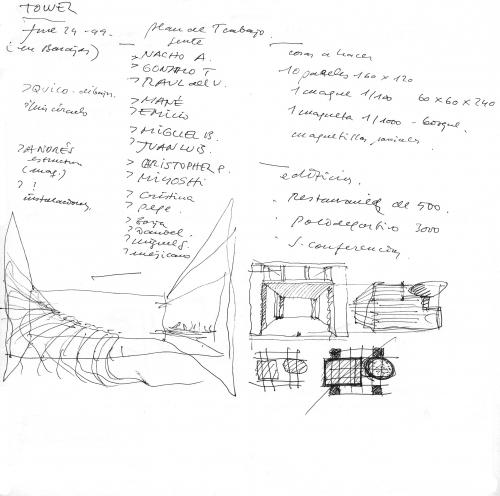 TOWER
June 24-99.
(en Barajas)
plan de Trabajo.
gente
> NACHO A.
> GONZALO T
> RAUL del V.
> MANÉ
> EMILIO
> MIGUEL B.
> JUAN LUIS.
> CHRISTOPHER P.
> MIYOSHI
> Cristina
> Pepe
> Borja
> Daniel.
> miguel S.
> mejicano
> QUICO - dibujos.
> ANDRÉS
estructura
(maq.)
> !
instalaciones
cosas a hacer
10 paneles 160 x 120
1 maque 1/100 60 x 60 x 240
1 maqueta 1/1000 - bosque.
maquetillas parciales.
edificios.
Restaurante de 500.
Polideportivo 3000
S. conferencias